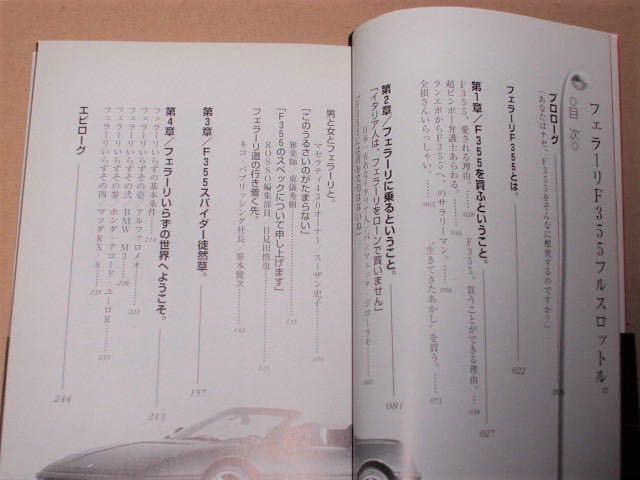 フェラーリF355フルスロットル。
◎目次◎
プロローグ
「あなたはナゼ、F355をそんなに酷使するのですか？」
006
フェラーリF355とは。
022
第1章／F355を買ふということ。
027
F355、愛される理由。……028
F355、買うことができる理由。……038
超ビンボー弁護士あらわる。……046
ランエボからF355へ。のサラリーマン。……056
“生きてきたあかし”を買う。……073
全損さんいらっしゃい。……063
第2章／フェラーリに乗るということ。
081
「イタリア人は、フェラーリをローンで買いません」
男と女とフェラーリと。
マセラティ430オーナー／スーザン史子……104
「このうるさいのがたまらない」
雅楽師／東儀秀樹……115
「F355のスペックについて申し上げます」
ROSSO編集部員／目見田慎也……125
フェラーリ道の行き着く先。
ネコ・パブリッシング社長／笹本健次……142
第3章／F355スパイダー徒然草。
157
第4章／フェラーリいらずの世界へようこそ。
213
フェラーリいらずの基本条件……214
フェラーリいらずその壱 アルファロメオ……221
フェラーリいらずその弐 BMW M3……228
フェラーリいらずその参 ホンダ アコード ユーロR……231
フェラーリいらずその四 マツダRX-8……235
エピローグ
244